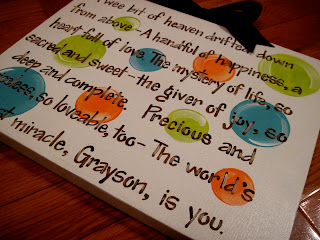 wee bit of heaven drifted down
from above - A handful of happiness, a
heart full of love. The mystery of life, so
sacred and sweet - the giver of joy, so
deep and complete. Precious and
so loveable, too - The world's
miracle, Grayson, is you.